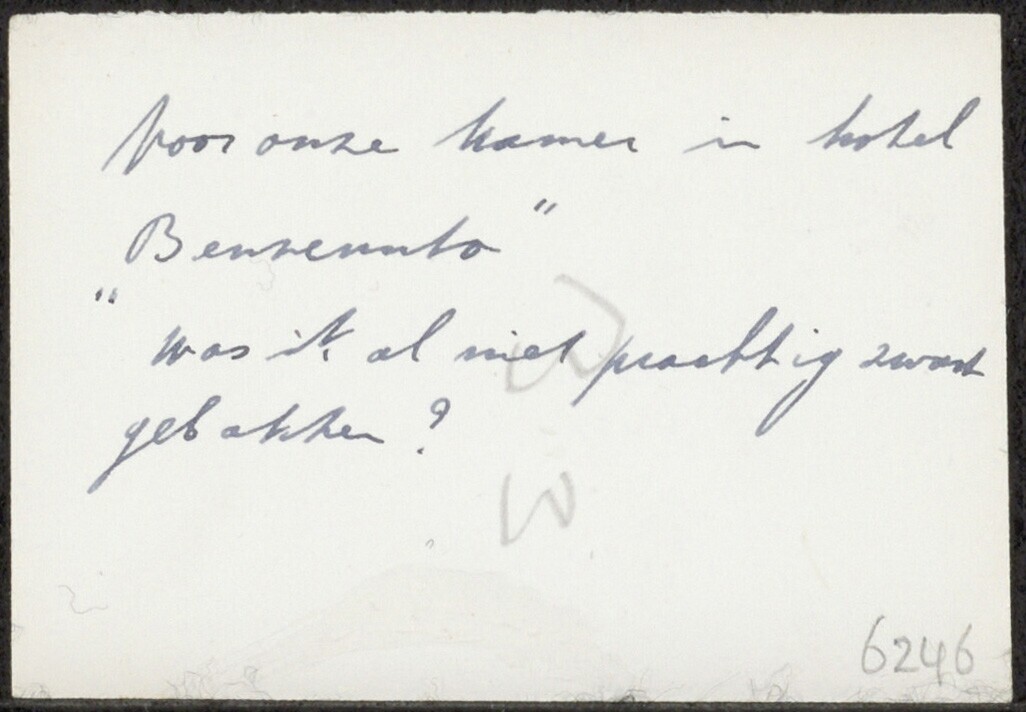 Voor onze kamer in hotel
Benvenuto"
"
was ik al niet prachtig zwart
gebakken?
W
6246